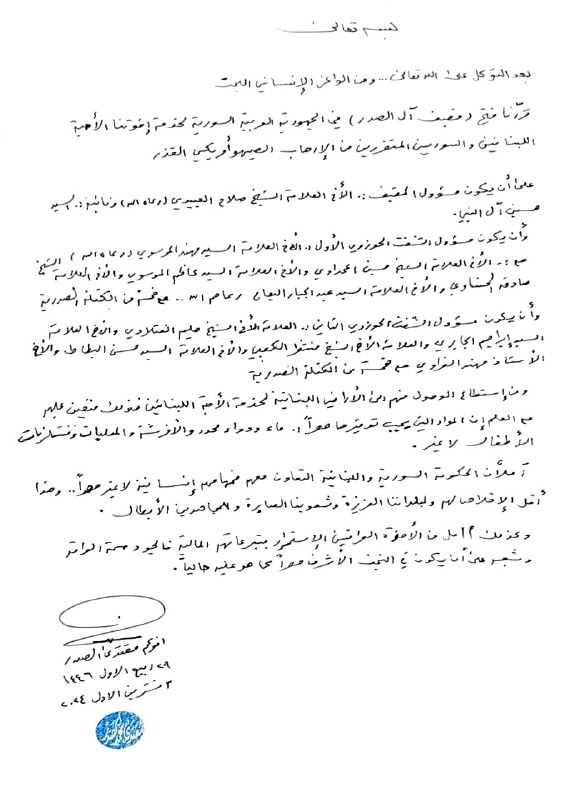 بسمه تعالى
بعد التوكل على الله تعالى... ومن الواعز الإنساني البحت
قررنا فتح (مضيف آل الصدر) في الجمهورية العربية السورية لخدمة إخوتنا الأحبة
اللبنانيين والسوريين المتضررين من الإرهاب الصهيوأمريكي القذر
على أن يكون مسؤول المضيف :. الأخ العلامة الشيخ صلاح العبيدي (رعاه الله) ونائبه :. السيد
حسين آل النبي.
وأن يكون مسؤول الشفت الحوزوي الأول :. الأخ العلامة السيد مهند الموسوي (رعاه الله) الشيخ
مع :. الأخ العلامة الشيخ حسين الحمداوي والأخ العلامة السيد كاظم الموسوي والأخ العلامة
صادق الحسناوي والأخ العلامة السيد عبد الجبار رعاهم الله .. مع خمسة من الكتلة الصدرية
وأن يكون مسؤول الشفت الحوزوي الثاني :. العلامة الأخ الشيخ والأخ العلامة
السيد إبراهيم الجابري والعلامة الأخ الشيخ منتظر الكعبي والأخ العلامة السيد حسن البطاط والأخ
الأستاذ مهند الغراوي مع خمسة من الكتلة الصدرية
ومن إستطاع الوصول منهم الى الأراضي اللبنانية لخدمة الأحبة اللبنانيين فذلك متعين عليهم
مع العلم إن المواد التي يجب توفيرها حصراً :. ماء ودواء محدد والأفرشة والمعلبات ومستلزمات
الأطفال لا غير.
آملاً من الحكومة السورية واللبنانية التعاون معهم فمهامهم إنسانية لا غير حصراً .. وهذا
أقل الإخلاص لهم ولبلداننا العزيزة وشعوبنا الصابرة والمجاهدين الأبطال.
وعندئذ آمل من الأخوة العراقيين الإستمرار بتبرعاتهم المالية فالجود سمة العراق
وشعبه على أن يكون في النجف الأشرف حصراً كما هو عليه حالياً.
اخوكم مقتدى الصدر
٢٩ ربيع الاول ١٤٤٦
٣ تشرين الاول ٢٠٢٤